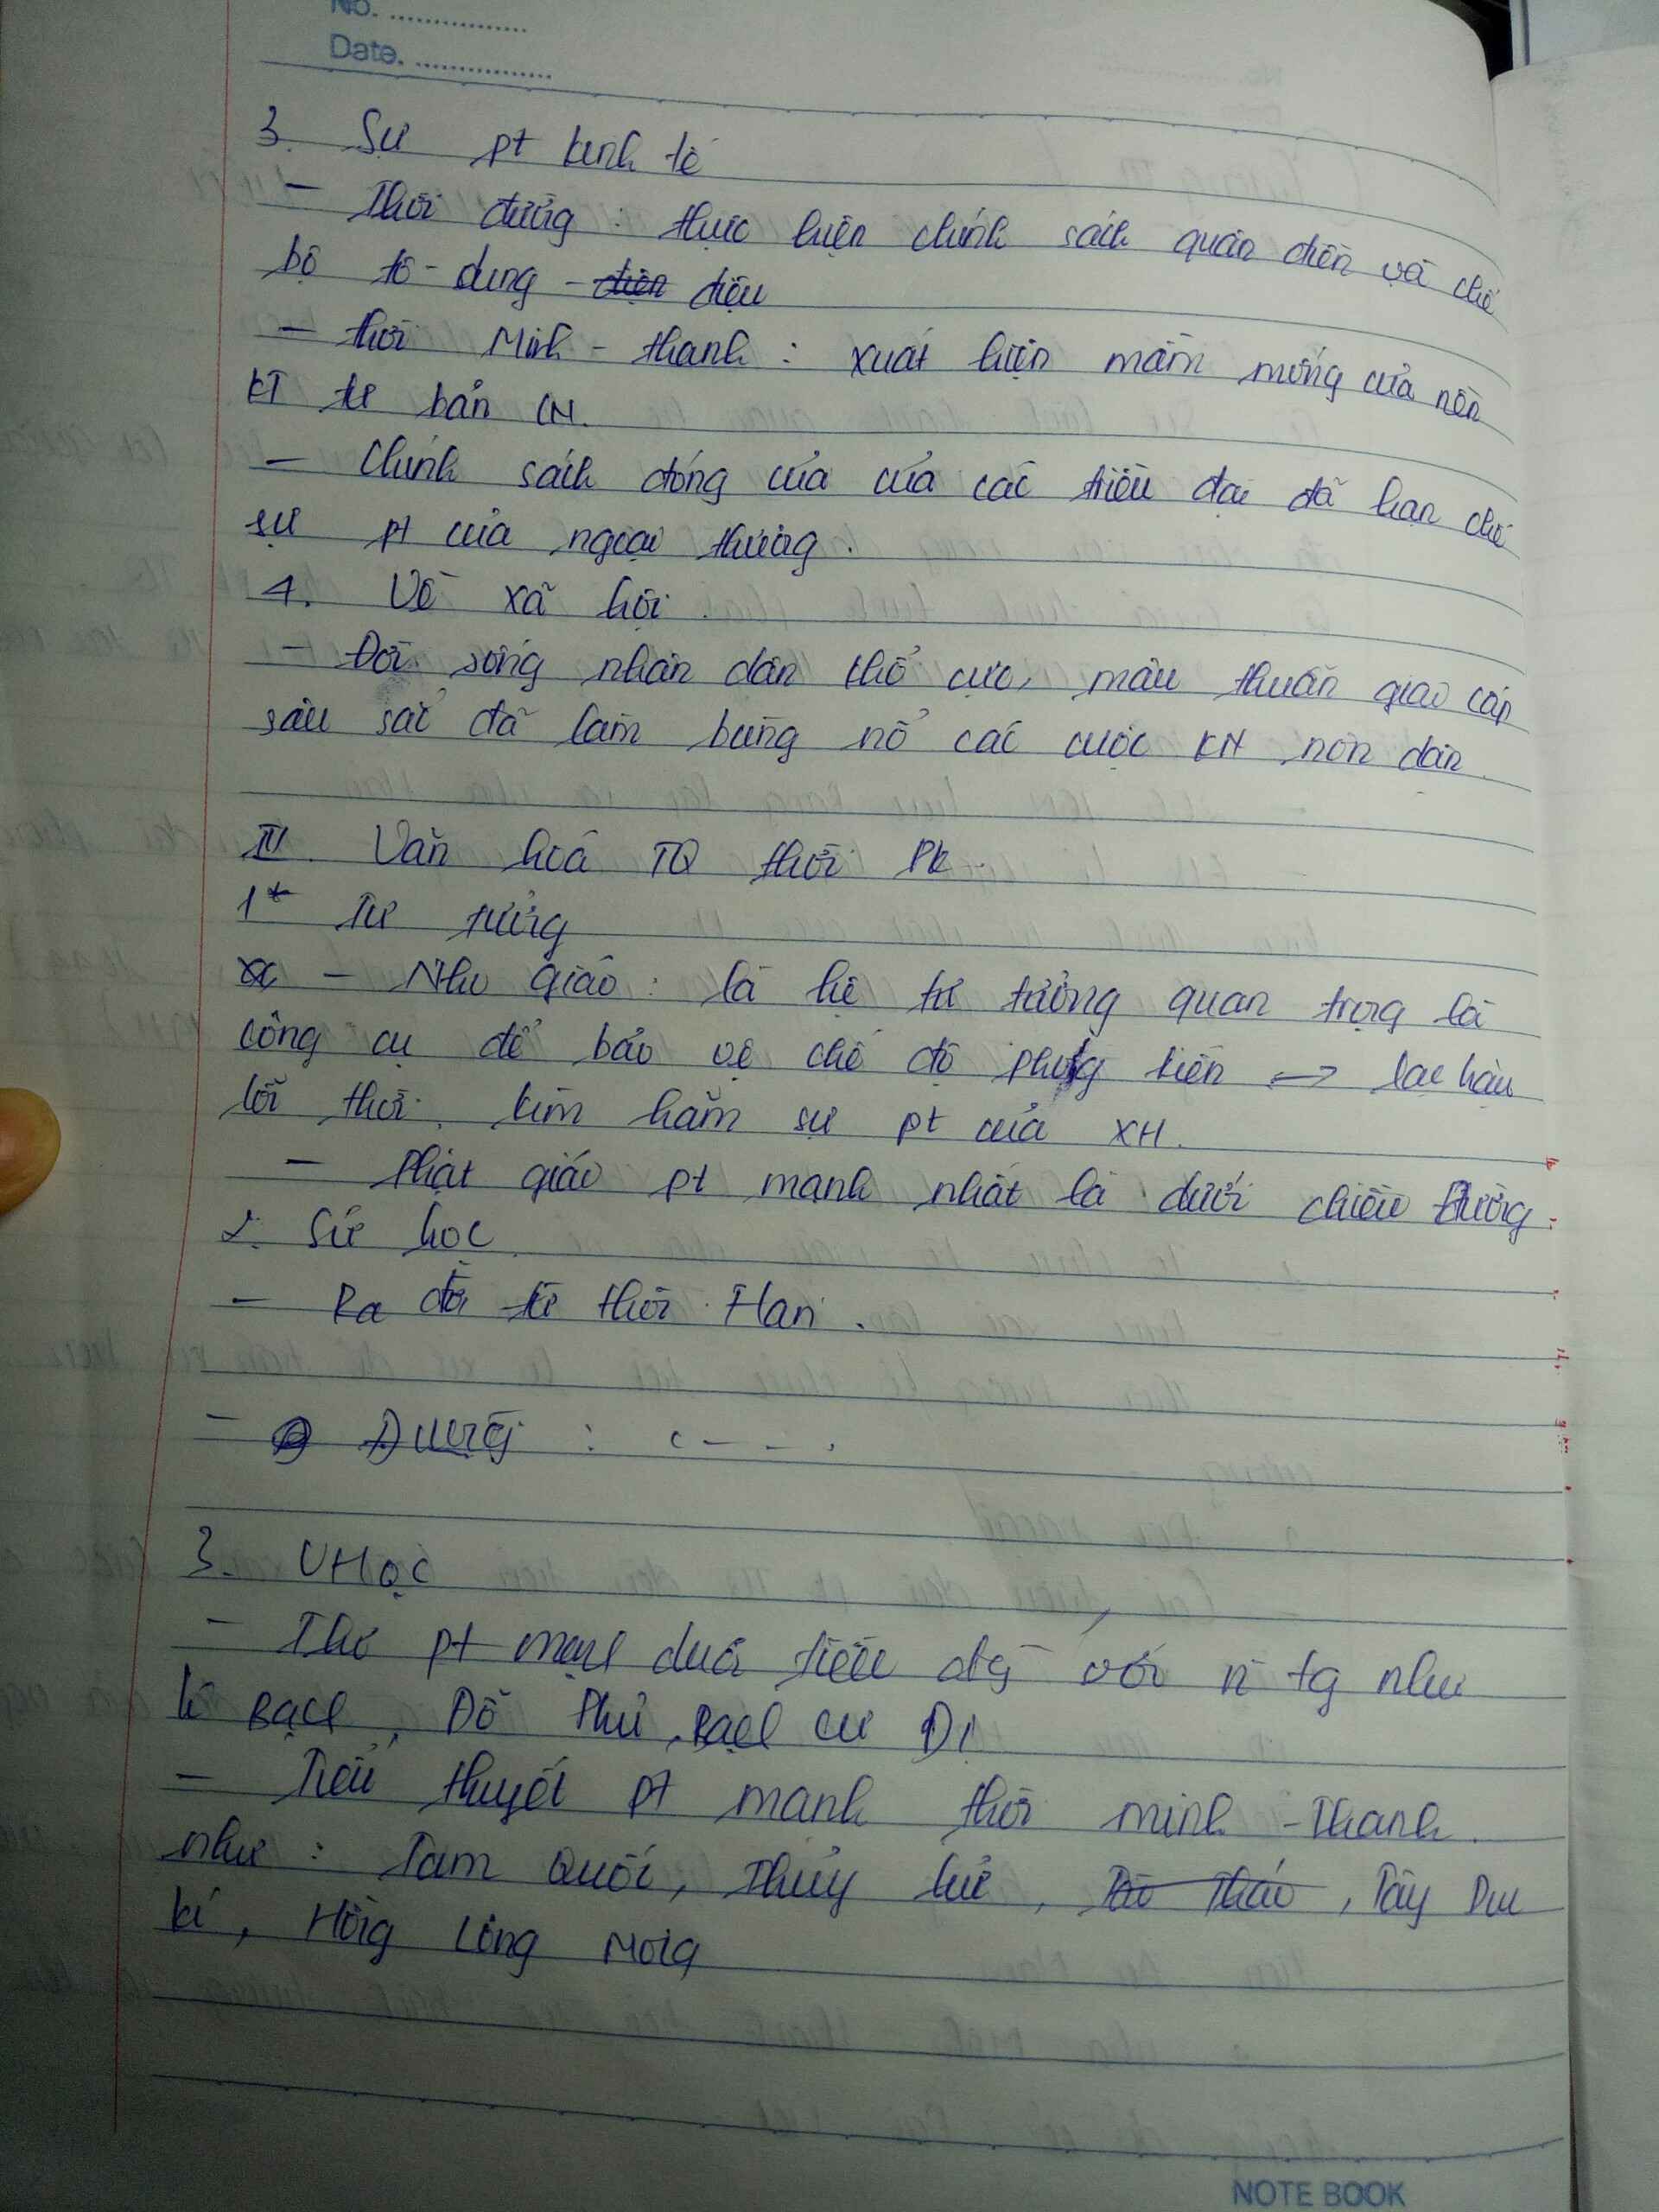 No. ...............
Date. ...............
3. Sự pt kinh tế
- Thời đường : thực hiện chính sách quân điền và chế
bộ tô - dung - điện điệu
- thời Minh - thanh : xuất hiện mầm mống của nền
KT tư bản CN.
- Chính sách đóng cửa của các triều đại đã hạn chế
sự pt của ngoại thương.
4. Về xã hội
- Đời sống nhân dân khổ cực, mâu thuẫn giao cấp
sâu sắc đã làm bùng nổ các cuộc KN nôn dân
IV. Văn hoá TQ thời PK.
1* Tư tưởng
- Nho giáo : là hệ tư tưởng quan trọng là
công cụ để bảo vệ chế độ phong kiến → lạc hậu
lỗi thời, kìm hãm sự pt của XH.
- Phật giáo pt mạnh nhất là dưới chiều Đường.
2. Sử học
- Ra đời từ thời Hán.
- Đường : - - -
3. VHọc
- Thơ pt mạnh dưới triều đg với n tg như
Lí Bạch, Đỗ Phủ, Bạch Cư Dị
- Tiểu thuyết pt mạnh thời minh - Thanh
như : Tam Quốc, Thủy hử, Tào Tháo, Tây Du
kí, Hồng Lâng Mộng
NOTE BOOK